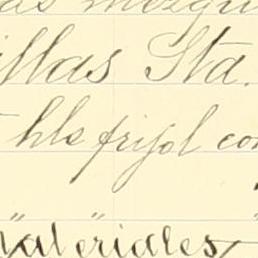 as mezqui
illas Sta.
hls frijol con
" " "
Materiales